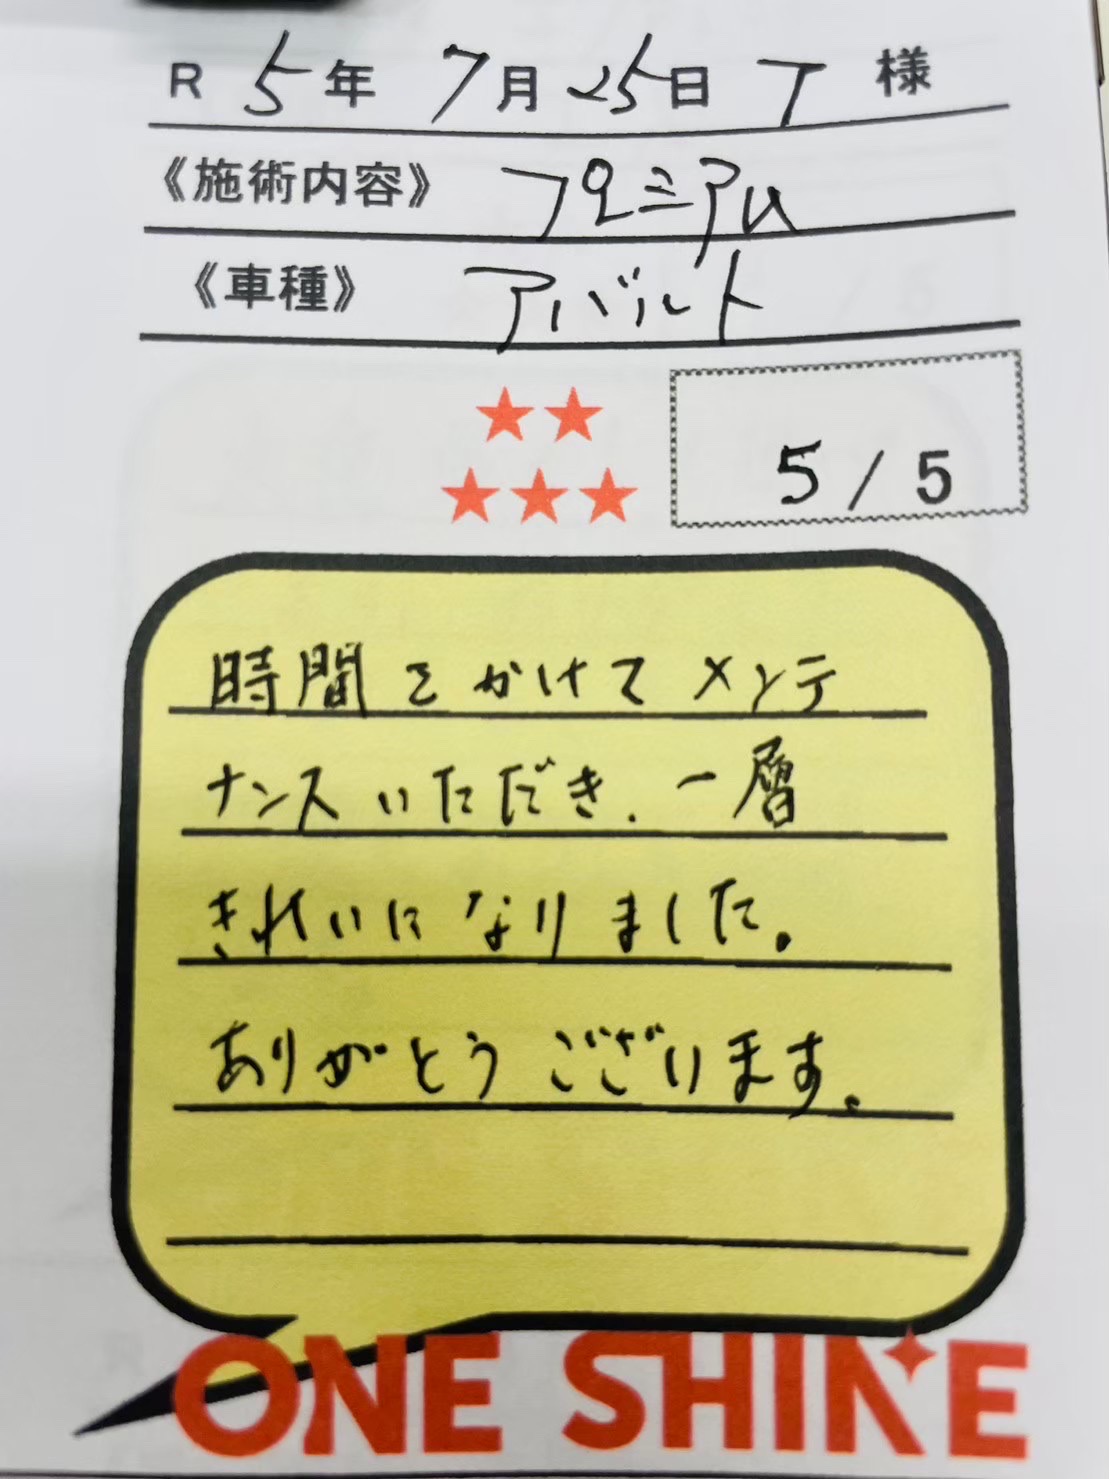 R 5年 7月25日 T 様
《施術内容》 プレミアム
《車種》 アバルト
5 / 5
時間をかけてメンテ
ナンスいただき、一層
きれいになりました。
ありがとうございます。
ONE SHINE